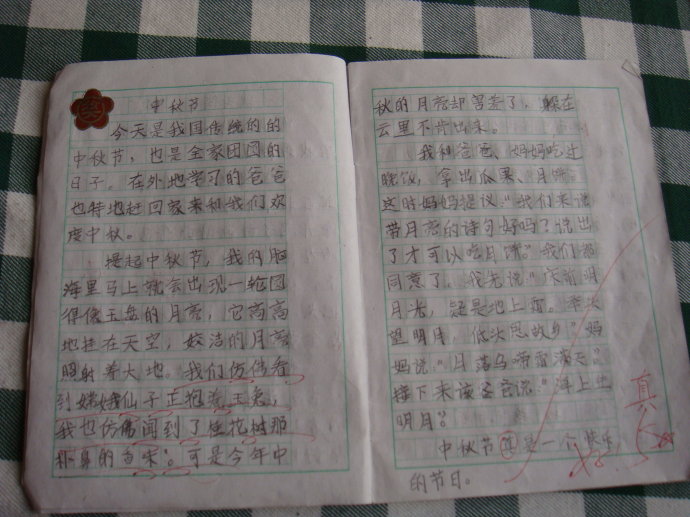 中秋节
今天是我国传统的的
中秋节，也是全家团圆的
日子。在外地学习的爸爸
也特地赶回家来和我们欢
度中秋。
提起中秋节，我的脑
海里马上就会出现一轮圆
得像玉盘的月亮，它高高
地挂在天空，皎洁的月亮
照射着大地。我们仿佛看
到嫦娥仙子正抱着玉兔，
我也仿佛闻到了桂花树那
扑鼻的香味。可是今年中
秋的月亮却害羞了，躲在
云里不肯出来。
我和爸爸、妈妈吃过
晚饭，拿出瓜果、月饼。
这时妈妈提议“我们来说
带月亮的诗句好吗？说出
了才可以吃月饼。”我们都
同意了。我先说“床前明
月光，疑是地上霜。举头
望明月，低头思故乡”妈
妈说“月落乌啼霜满天”
接下来该爸爸说“海上生
明月”。
中秋节是一个快乐
的节日。
真